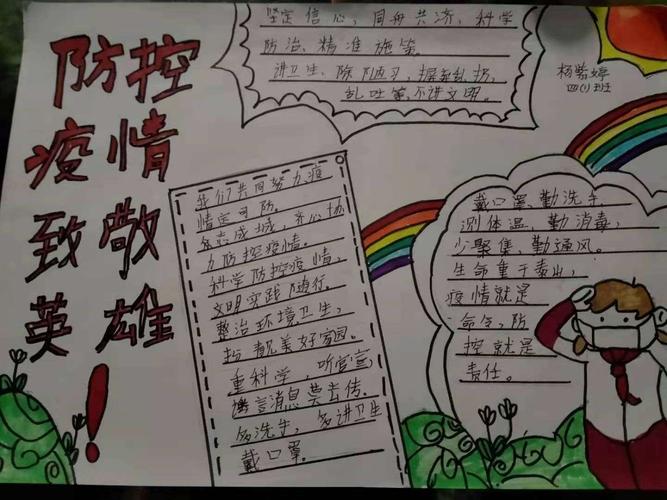 防控
疫情
致敬
英雄
！
坚定信心，同舟共济，科学
防治，精准施策。
讲卫生、除陋习，摒弃乱扔、
乱吐等不讲文明。
杨紫婷
四(1)班
我们共同努力,疫
情定可防。
众志成城，齐心协
力防控疫情。
科学防控疫情，
文明实践随行。
整治环境卫生，
扮靓美好家园。
重科学，听官宣
谣言消息莫去传。
多洗手，多讲卫生
戴口罩。
戴口罩、勤洗手
测体温、勤消毒，
少聚集、勤通风。
生命重于泰山，
疫情就是
命令，防
控就是
责任。